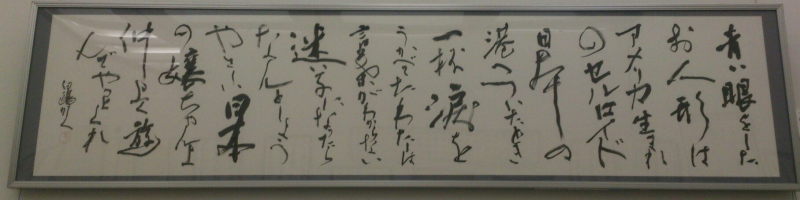 青い眼をした
お人形は
アメリカ生まれ
のセルロイド
日本の
港へついたとき
一杯涙を
うかべてたわたしは
言葉がわからない
迷い子になったら
なんとしょう
やさしい日本
の嬢ちゃんよ
仲よく遊
んでやっとくれ